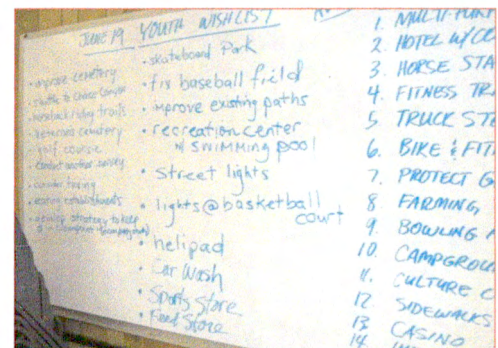 JUNE 19 YOUTH WISHLIST
• improve cemetery
• shuttle to Chaco Canyon
• horseback riding trails
• veterans cemetery
• golf course
• conduct another survey
• consider zoning
• eating establishments
• develop strategy to help
• skateboard Park
• fix baseball field
• improve existing paths
• recreation center
w/ SWIMMING POOL
• street lights
• lights @ basketball
court
• helipad
• Car Wash
• Sports Store
• Feed Store
1. MULTI-PURP
2. HOTEL W/CO
3. HORSE STA
4. FITNESS TR
5. TRUCK STO
6. BIKE & FIT
7. PROTECT G
8. FARMING,
9. BOWLING A
10. CAMPGROU
11. CULTURE C
12 SIDEWALKS
13 CASINO
14